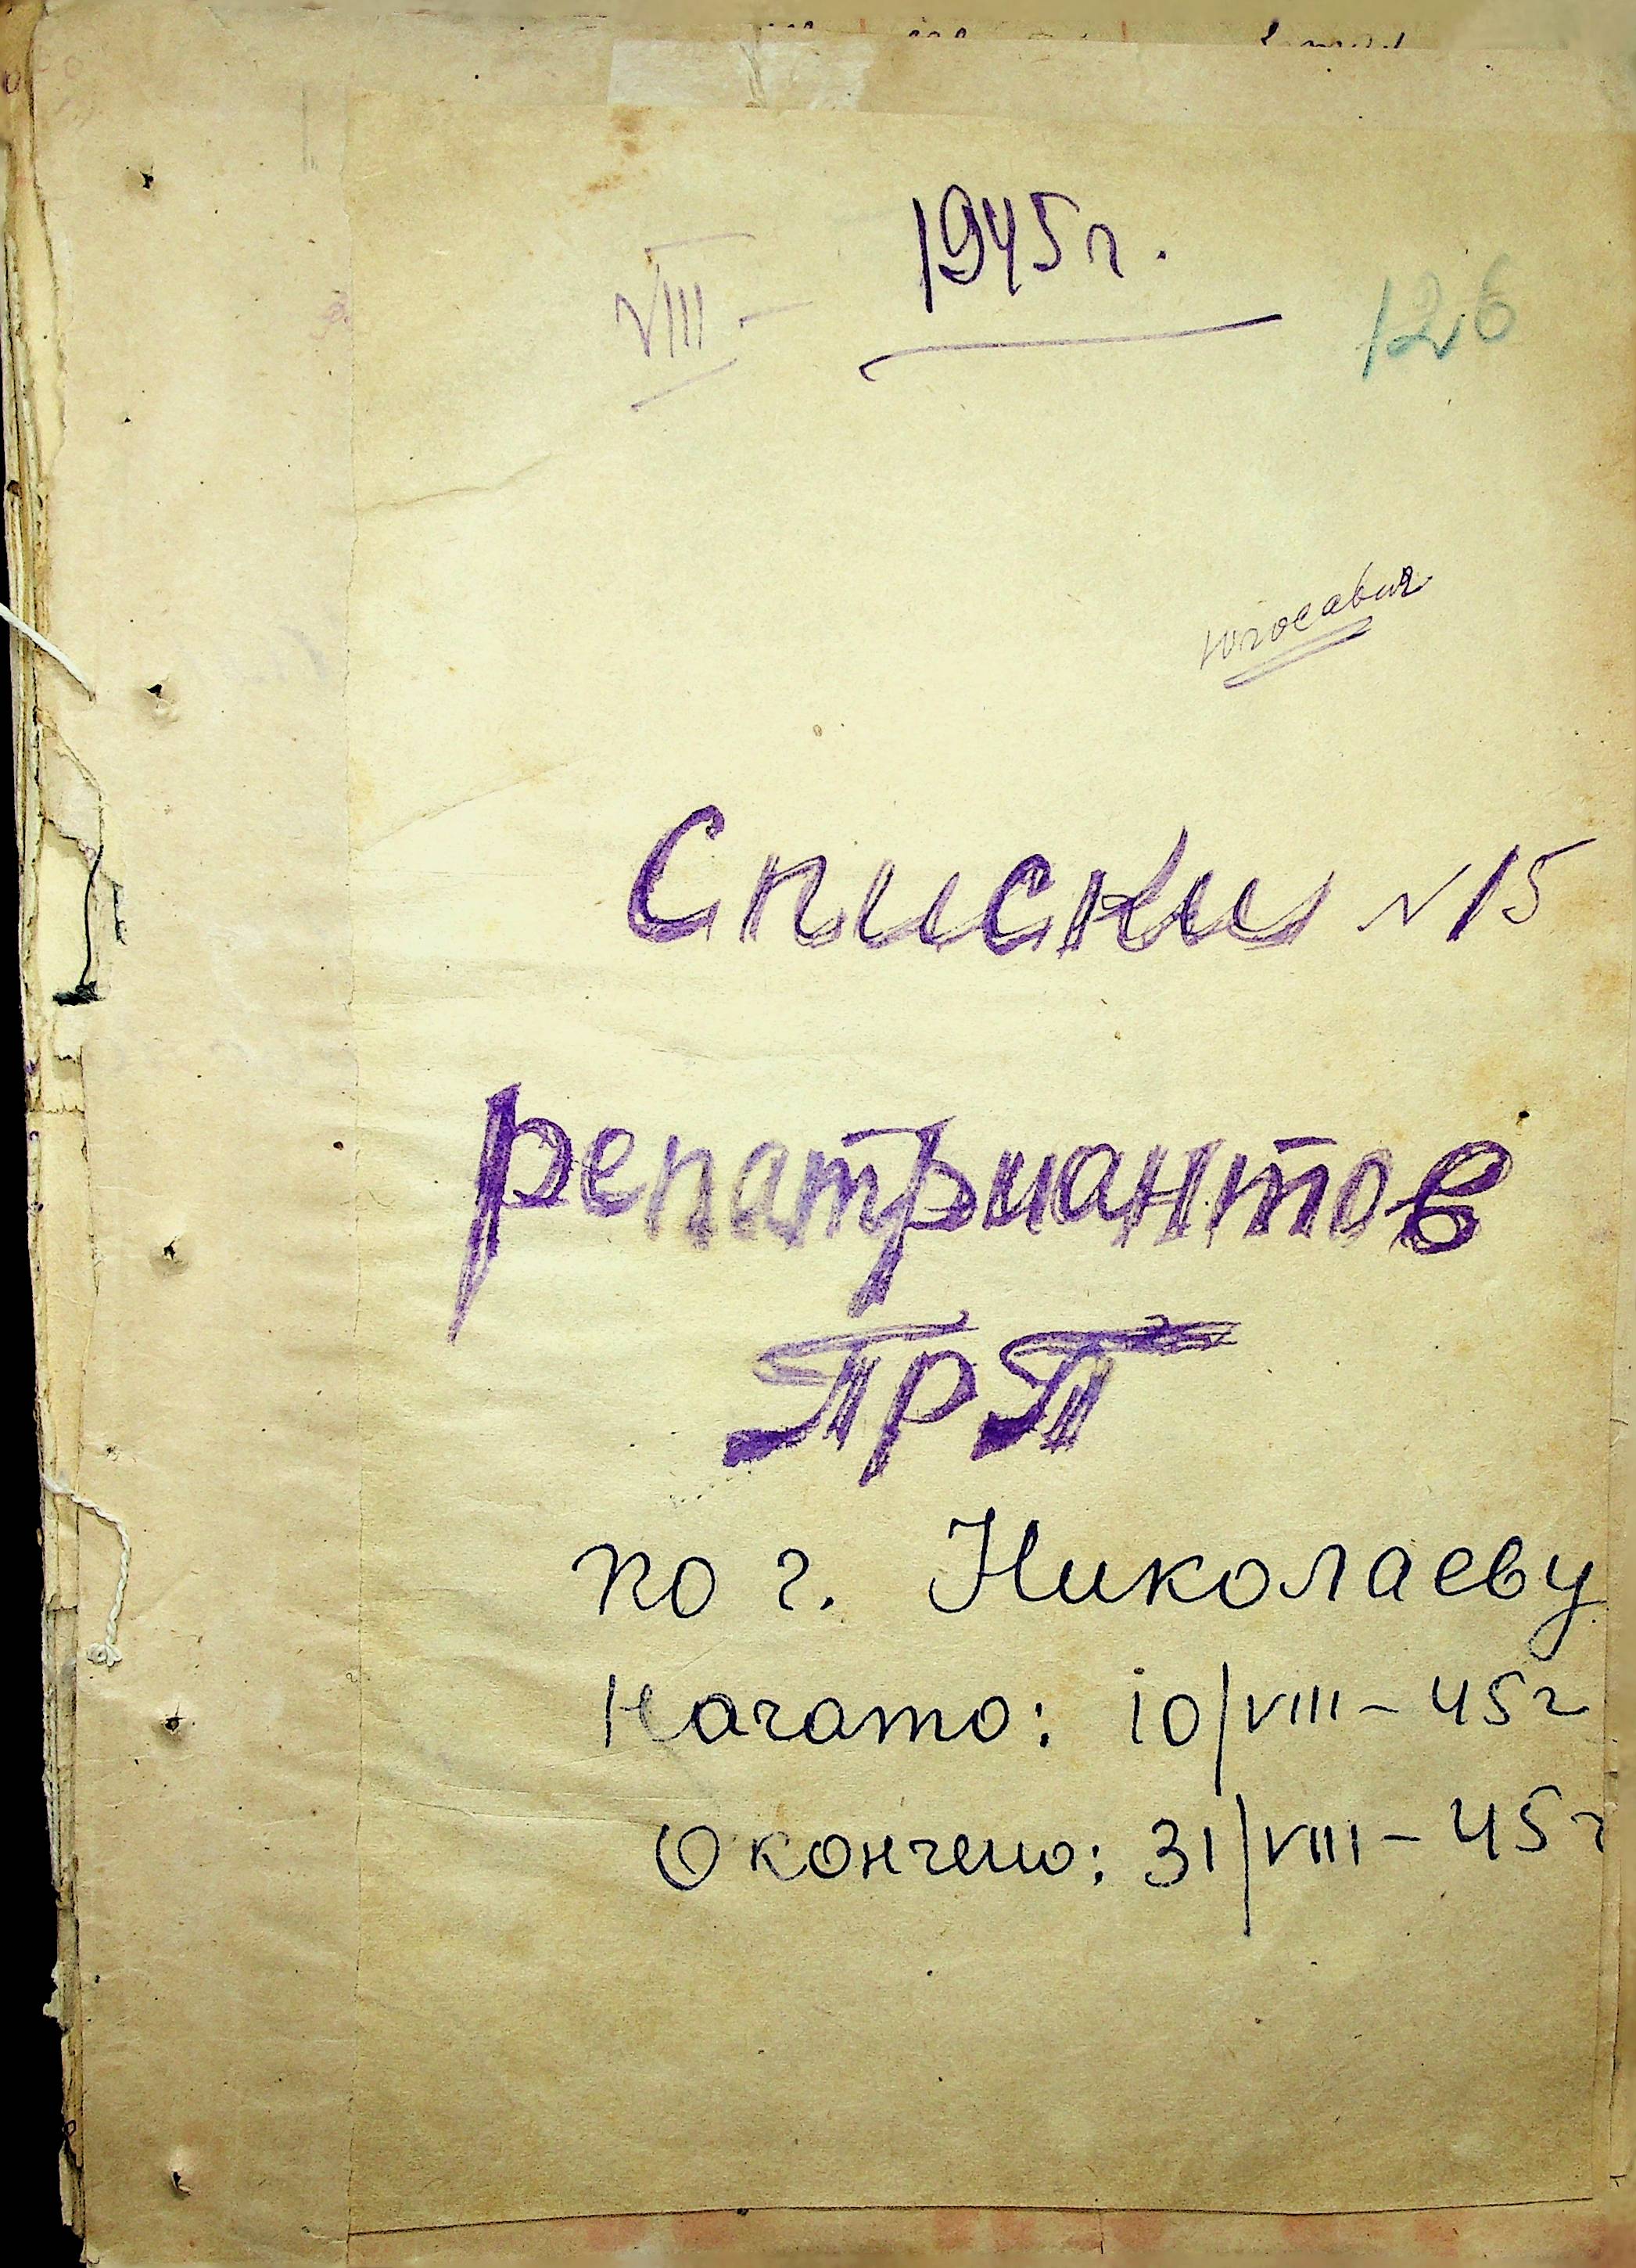 1945 г.
VIII –
126
Югославия
Списки № 15
репатриантов
ПРП
по г. Николаеву
Начато: 10/VIII – 45 г
Окончено: 31/VIII – 45 г